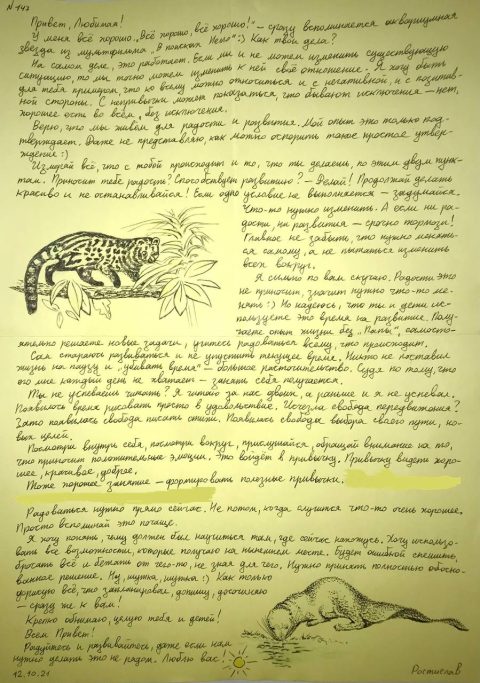 N 147
Привет, Любимая!
У меня всё хорошо. „Всё хорошо, всё хорошо!" – сразу вспоминается аквариумная
звезда из мультфильма „В поисках Немо" :) Как твои дела?
На самом деле, это работает. Если мы и не можем изменить существующую
ситуацию, то мы точно можем изменить к ней своё отношение. Я хочу быть
для тебя примером, что ко всему можно относиться и с негативной, и с позитив-
ной стороны. С непривычки может показаться, что бывают исключения – нет,
хорошее есть во всём, без исключения.
Верю, что мы живём для радости и развития. Мой опыт это только под-
тверждает. Даже не представляю, как можно оспорить такое простое утвер-
ждение :)
Измеряй всё, что с тобой происходит и то, что ты делаешь, по этим двум пунк-
там. Приносит тебе радость? Способствует развитию? – Делай! Продолжай делать
красиво и не останавливайся! Если одно условие не выполняется – задумайся.
Что-то нужно изменить. А если ни ра-
дости, ни развития – срочно тормози!
Главное не забыть, что нужно менять-
ся самому, а не пытаться изменить
всех вокруг.
Я сильно по вам скучаю. Радости это
не приносит, значит нужно что-то ме-
нять :) Но надеюсь, что ты и дети ис-
пользуете это время на развитие. Полу-
чаете опыт жизни без „Папы", самосто-
ятельно решаете новые задачи, учитесь радоваться всему, что происходит.
Сам стараюсь развиваться и не упустить текущее время. Никто не поставил
жизнь на паузу и „убивать время" – большое расточительство. Судя по тому, что
его мне каждый день не хватает – занять себя получается.
Ты не успеваешь читать? Я читаю за нас двоих, а раньше и я не успевал.
Появилось время рисовать просто в удовольствие. Исчезла свобода передвижения?
Зато появилась свобода писать стихи. Появилась свобода выбора своего пути, но-
вых целей.
Посмотри внутрь себя, посмотри вокруг, прислушайся, обращай внимание на то,
что приносит положительные эмоции. Это войдёт в привычку. Привычку видеть хоро-
шее, красивое, доброе.
Тоже хорошее занятие – формировать полезные привычки.
Радоваться нужно прямо сейчас. Не потом, когда случится что-то очень хорошее.
Просто вспоминай это почаще.
Я хочу понять, чему должен был научиться там, где сейчас нахожусь. Хочу использо-
вать все возможности, которые получаю на нынешнем месте. Будет ошибкой спешить,
бросать всё и бежать от чего-то, не зная для чего. Нужно принять полностью обосно-
ванное решение. Ну, шутка, шутка :) Как только
дорисую всё, что запланировал, допишу, досочиняю
– сразу же к вам!
Крепко обнимаю, целую тебя и детей!
Всем Привет!
Радуйтесь и развивайтесь, даже если нам
нужно делать это не рядом. Люблю вас!
12.10.21
Ростислав